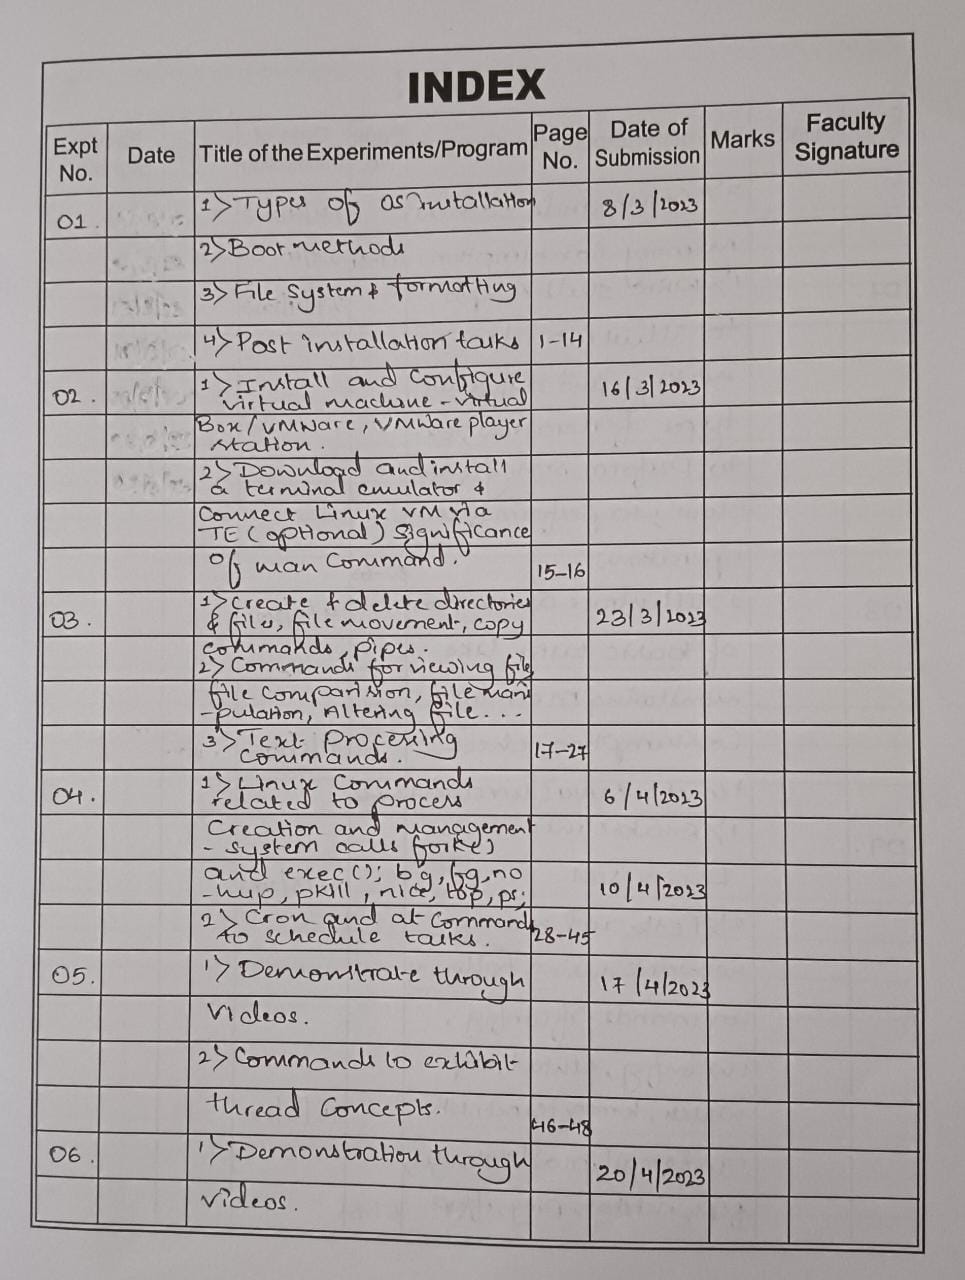 INDEX
Expt No. Date Title of the Experiments/Program Page No. Date of Submission Marks Faculty Signature
01. 1> Types of OS Installation 8/3/2023
2> Boot methods
3> File System & formatting
4> Post installation tasks 1-14
02. 1> Install and Configure 16/3/2023
virtual machine - virtual
Box/VMWare, VMWare player
station.
2> Download and install
a terminal emulator &
Connect Linux VM via
TE (optional) Significance
of man Command. 15-16
03. 1> Create & delete directories 23/3/2023
& files, file movement, copy
commands, pipes.
2> Commands for viewing file
file comparision, file mani
-pulation, Altering file...
3> Text Processing 17-27
Commands.
04. 1> Linux Commands 6/4/2023
related to process
Creation and management
- system calls fork()
and exec(); bg, fg, no
-hup, pkill, nice, top, ps; 10/4/2023
2> Cron and at Commands
to schedule tasks. 28-45
05. 1> Demonstrate through 17/4/2023
videos.
2> Commands to exhibit
thread Concepts. 46-48
06. 1> Demonstration through 20/4/2023
videos.